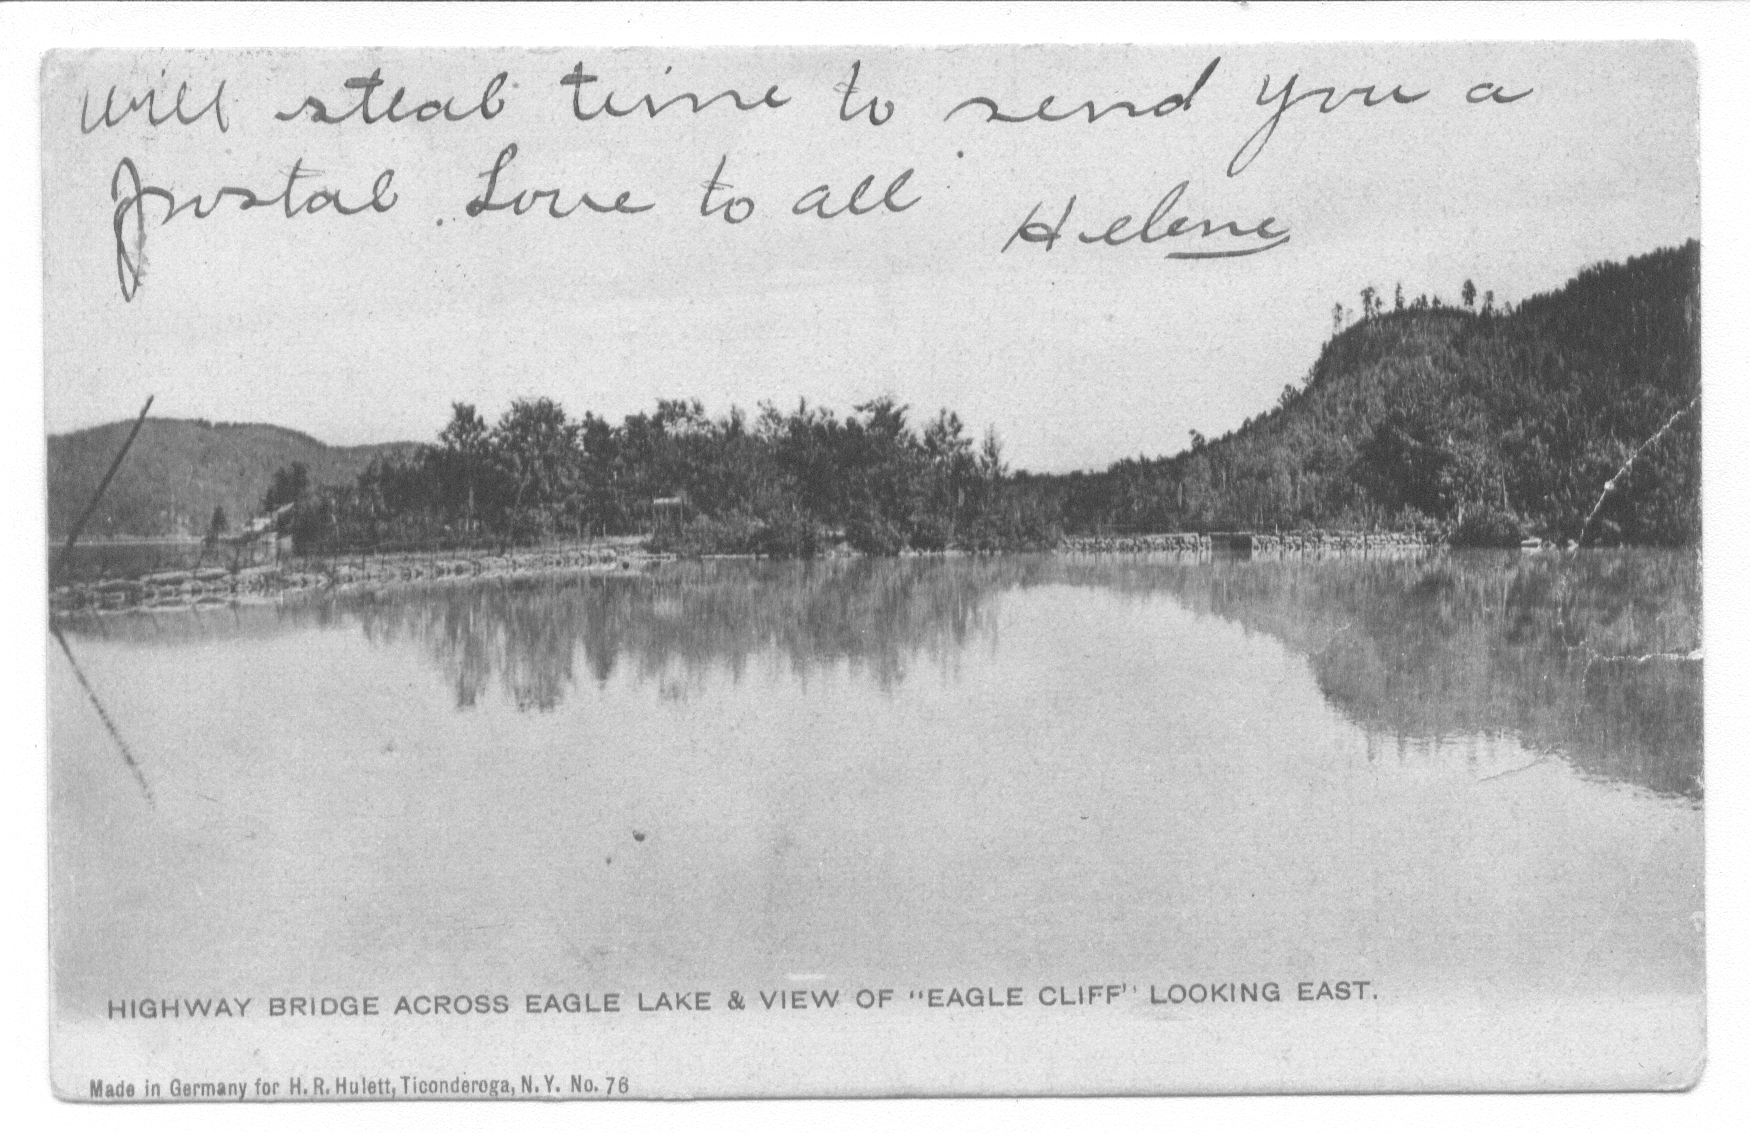 Will steal time to send you a
postal. Love to all
Helene
HIGHWAY BRIDGE ACROSS EAGLE LAKE & VIEW OF "EAGLE CLIFF" LOOKING EAST.
Made in Germany for H. R. Hulett, Ticonderoga, N. Y. No. 76